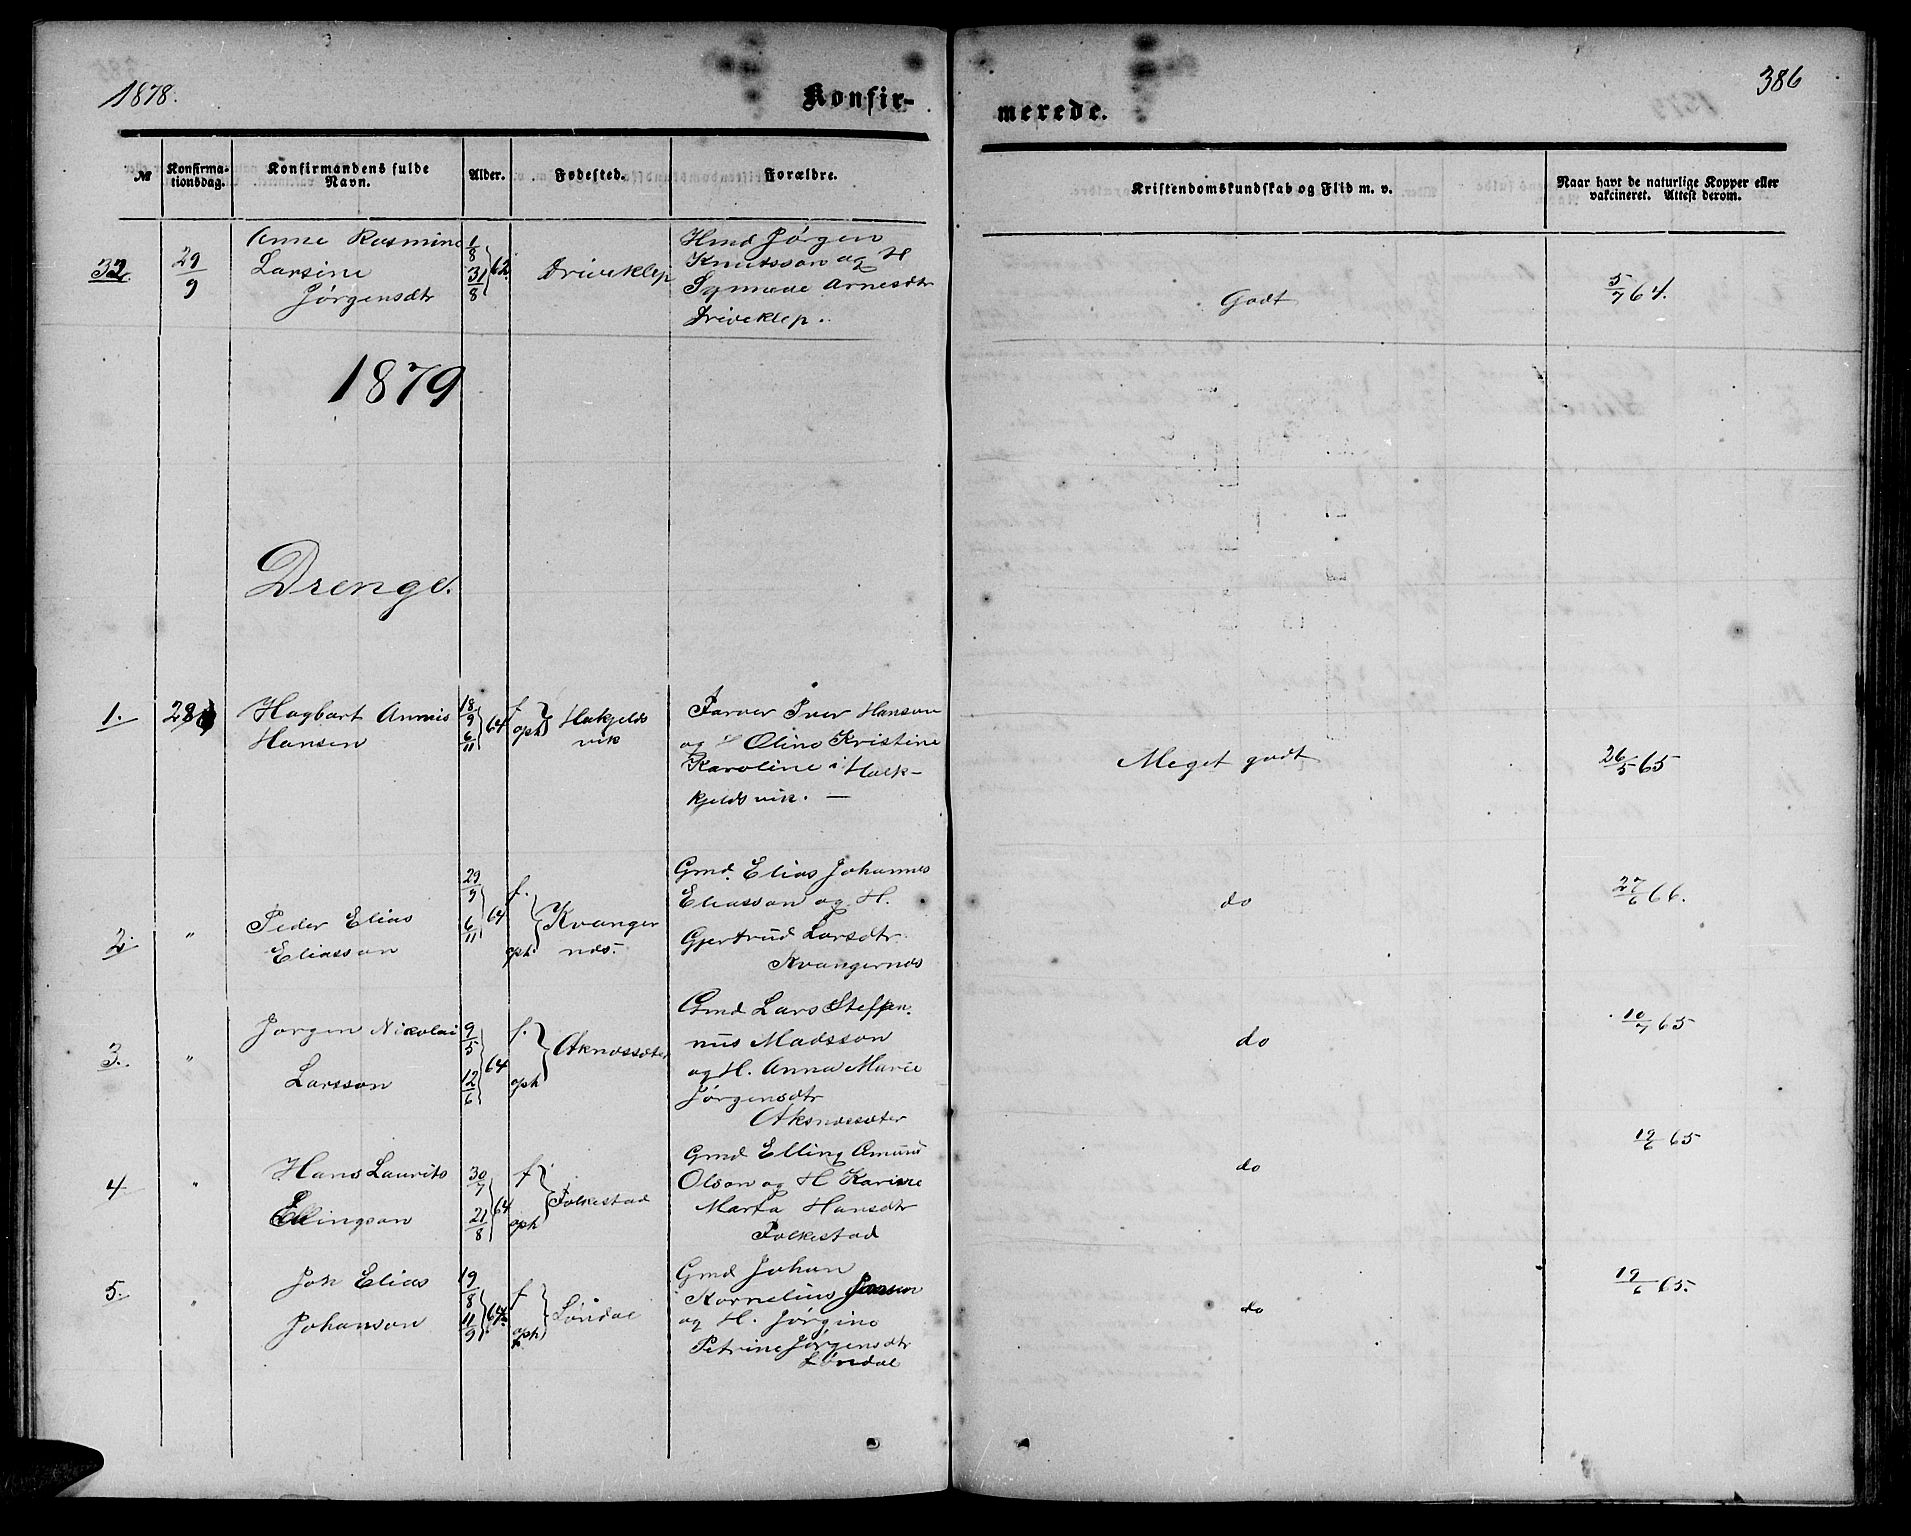 1878.
Konfir-
merede.
386
№
Konfirma-
tionsdag.
Konfirmandens fulde
Navn.
Alder.
Fødested.
Forældre.
Kristendomskundskab og Flid m. v.
Naar havt de naturlige Kopper eller
vakcineret. Attest derom.
32
29/9
Anne Rasmine
Larsine
Jørgensdtr
1/8
31/8
62.
Driveklep
Hmd Jørgen
Knutsson og H
Synneve Arnesdtr
Driveklep.
Godt
5/7 64.
1879
Drenge.
1.
28
Hagbart Annis
Hansen
18/9
6/11
64
f
oph
Hakjelds
vik
Farver Iver Hanson
og H Oline Kristine
Karoline i Halk-
kjeldsvik. —
Meget godt
26/5 65
2.
"
Peder Elias
Eliasson
29/9
6/11
64
f.
oph.
Kvanger
næs.
Gmd. Elias Johannes
Eliasson og H.
Gjertrud Larsdtr
Kvangernæs
do
27/6 66.
3.
"
Jørgen Nikolai
Larsson
9/5
12/6
64
f.
oph
Aknæssæter
Gmd Lars Steffen-
nus Madsson
og H. Anna Marie
Jørgensdtr
Aksnæssæter
do
10/7 65
4
"
Hans Laurits
Ellingson
30/7
21/8
64
f
oph
Folkestad
Gmd Elling Amund
Olson og H Karine
Marta Hansdtr
Folkestad
do
19/6 65
5.
"
Joh Elias
Johanson
19/8
11/9
64.
f
oph
Løndal
Gmd Johan
Kornelius
og H. Jørgine
Petrine Jørgensdtr
Løndal
do
19/6 65.